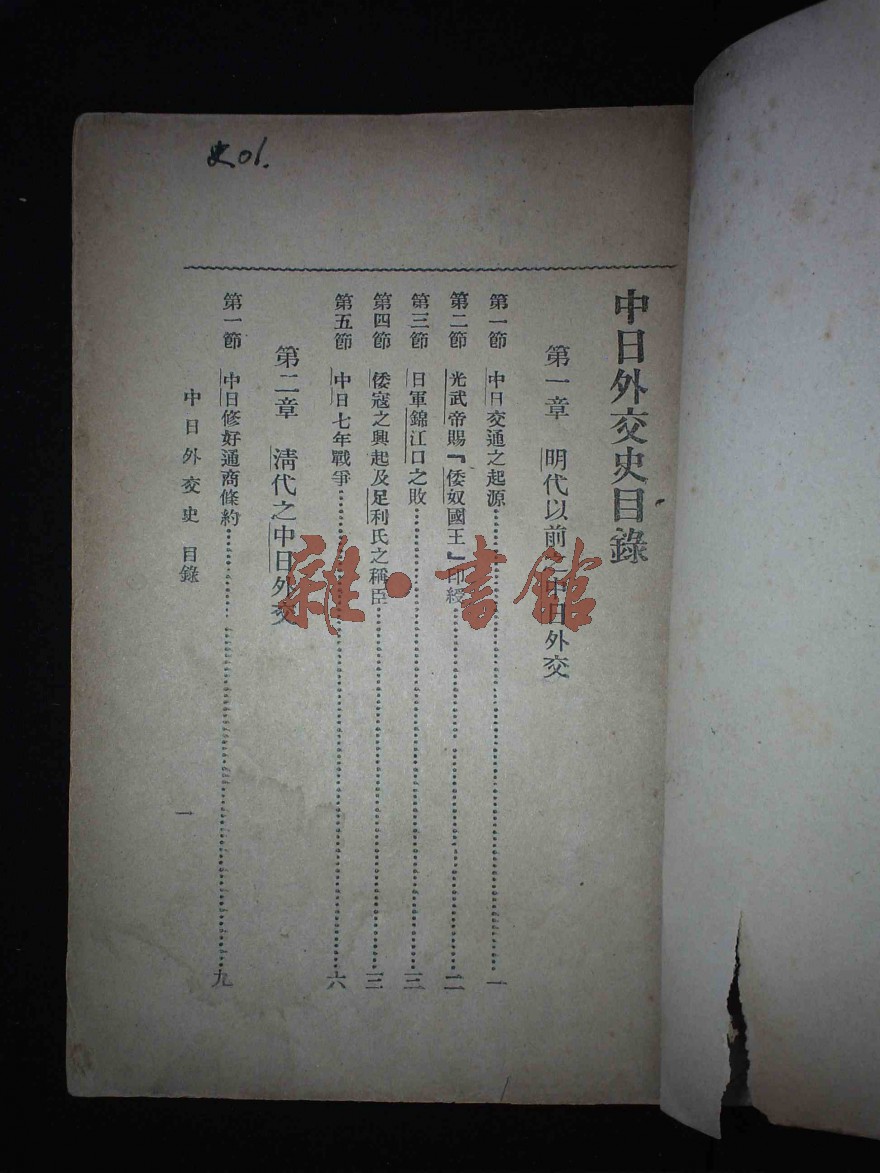 史01.
中日外交史目錄
第一章 明代以前之中日外交
第一節 中日交通之起源 一
第二節 光武帝賜『倭奴國王』印綬 二
第三節 日軍錦江口之敗 三
第四節 倭寇之興起及足利氏之稱臣 三
第五節 中日七年戰爭 六
第二章 清代之中日外交
第一節 中日修好通商條約 九
中日外交史 目錄
一
雜·書館